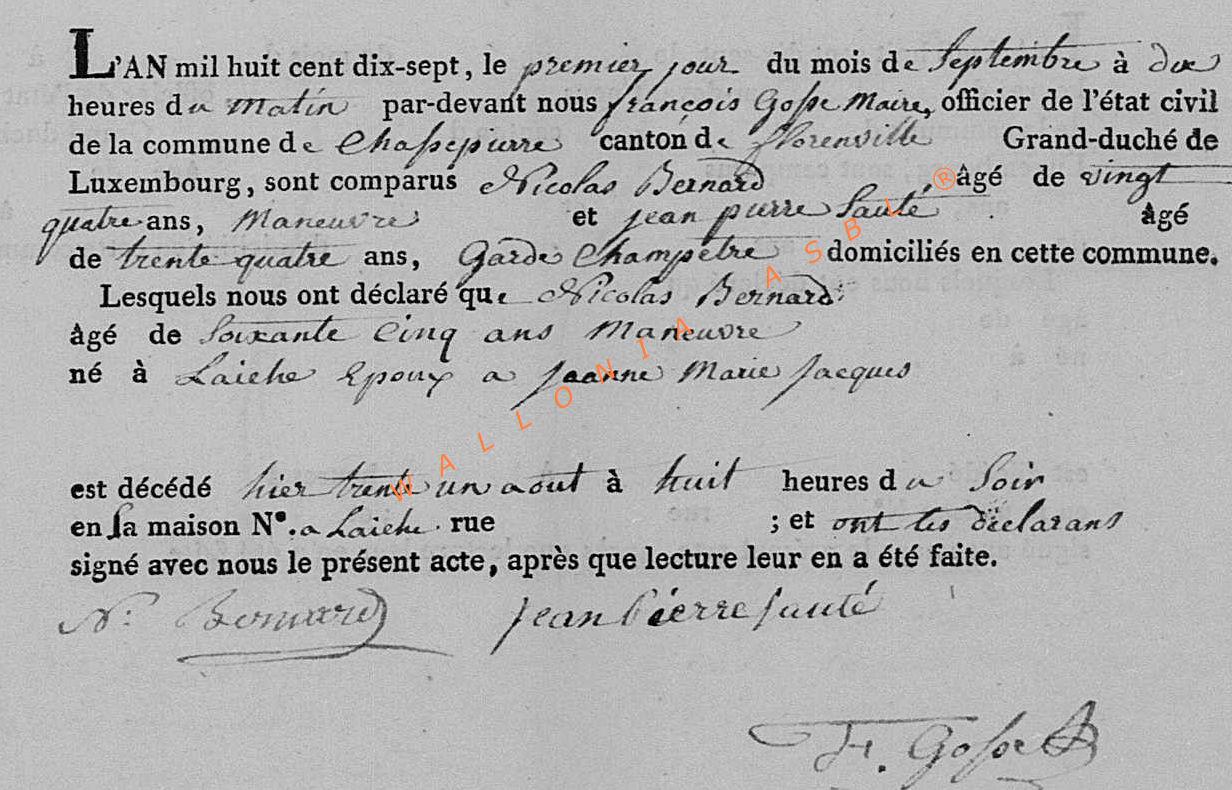 L'AN mil huit cent dix-sept, le premier jour du mois de Septembre à dix
heures du matin par-devant nous françois Gosse Maire, officier de l'état civil
de la commune de Chassepierre canton de florenville Grand-duché de
Luxembourg, sont comparus Nicolas Bernard âgé de vingt
quatre ans, Maneuvre et jean pierre Sauté âgé
de trente quatre ans, Garde Champêtre domiciliés en cette commune.
Lesquels nous ont déclaré que Nicolas Bernard
âgé de Soixante Cinq ans Maneuvre
né à Laiche Epoux a Jeanne Marie Jacques
est décédé hier trente un aout à huit heures du Soir
en sa maison N°. a Laiche rue ; et ont les déclarans
signé avec nous le présent acte, après que lecture leur en a été faite.
N. Bernard Jean Piérre Sauté
F. Gosse
WALLONIA ASBL ®